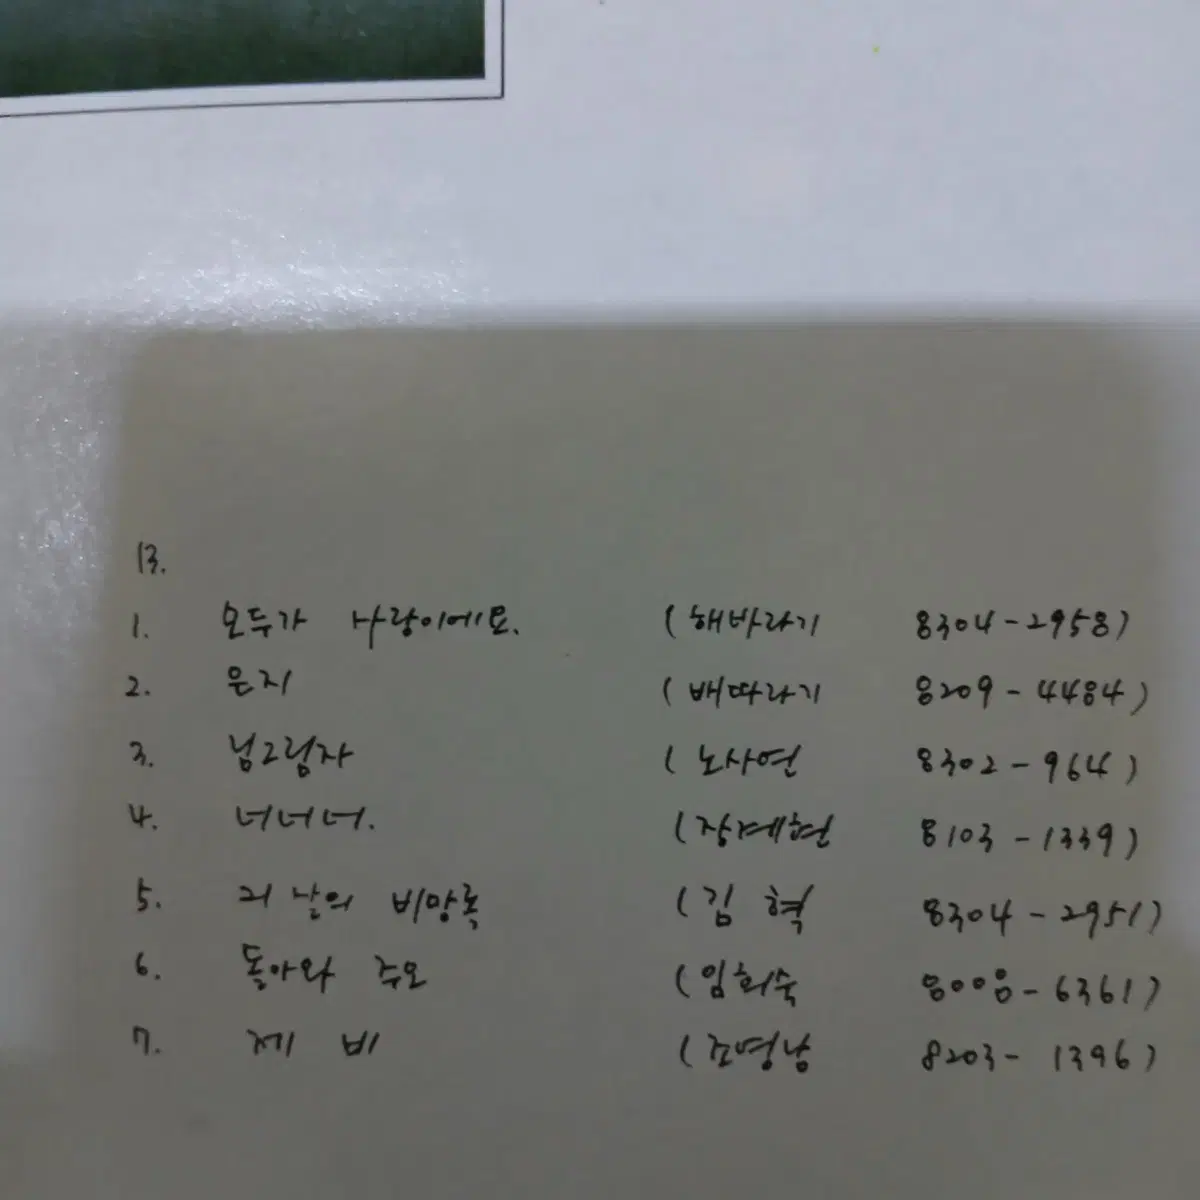 13.
1. 모두가 사랑이에요. (해바라기 8304-2958)
2. 은지 (배따라기 8209-4484)
3. 님그림자 (노사연 8302-964)
4. 너너너. (장계현 8103-1339)
5. 저 날의 비망록 (김 혁 8304-2951)
6. 돌아와 주오 (임희숙 8008-6361)
7. 제 비 (조영남 8203-1396)